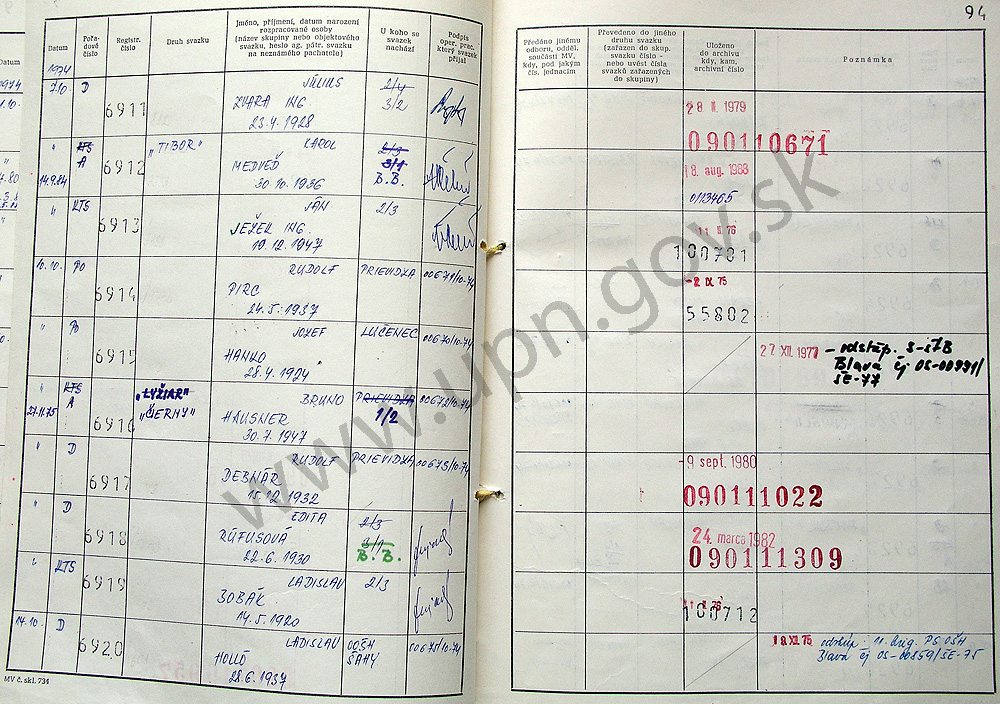 94
Datum
Pořadové číslo
Registr. číslo
Druh svazku
Jméno, příjmení, datum narození
rozpracované osoby
(název skupiny nebo objektového
svazku, heslo ag. pátr. svazku
na neznámého pachatele)
U koho se
svazek
nachází
Podpis
oper. prac.
který svazek
přijal
Předáno jinému
odboru, odděl.
součásti MV,
kdy, pod jakým
čís. jednacím
Převedeno do jiného
druhu svazku
(zařazen do skup.
svazku číslo -
nebo uvést čísla
svazků zařazených
do skupiny)
Uloženo
do archivu
kdy, kam,
archivní číslo
Poznámka
1974
7.10 D
6911
JÚLIUS
ZVARA ING
23.4.1928
2/4
3/2
28 II. 1979
090110671
" KTS
A
14.9.84
6912
"TIBOR"
KAROL
MEDVEĎ
30.10.1936
2/3
3/1
B.B.
18. aug. 1988
" KTS
6913
JÁN
JEŽEK ING.
19.12.1947
2/3
11 II 76
100701
10.10. PO
6914
RUDOLF
PIRC
24.5.1937
PRIEVIDZA
00671/10-74
-2 IX 75
55802
" PO
6915
JOZEF
HANKO
28.4.1924
LUČENEC
00670/10-74
27 XII. 1977
- odstúp. S-ŠTB
Blava čj OS-00991/
ŠE-77
" KTS
A
27.11.75
6916
"LYŽIAR"
"ČIERNY"
BRUNO
HAUSNER
30.7.1947
PRIEVIDZA
1/2
00672/10-74
" D
6917
RUDOLF
DEBNÁR
15.12.1932
PRIEVIDZA
00673/10-74
-9 sept. 1980
090111022
" D
6918
EDITA
RÚFUSOVÁ
22.6.1930
2/3
3/1
B.B.
24. marca 1982
090111309
" KTS
6919
LADISLAV
BOBÁK
14.5.1920
2/3
100712
14.10. D
6920
LADISLAV
HOLLÓ
28.6.1937
OOŠH
ŠAHY
00675/10-74
18 XII. 75
odstúp. 11. brig. PS OŠH
Blava čj OS-00859/ŠE-75
MV č. skl. 734
www.upn.gov.sk